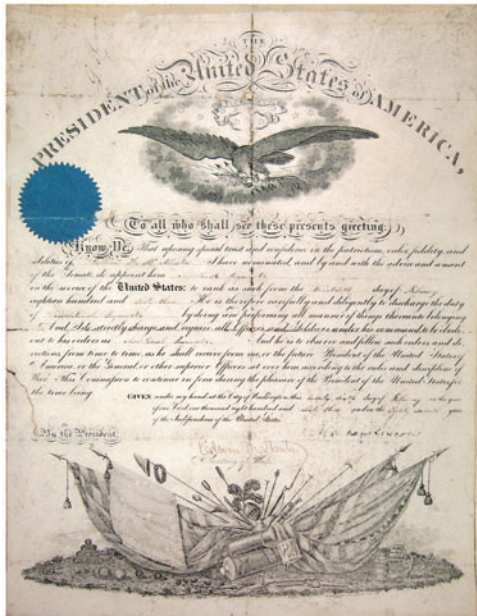 THE
PRESIDENT of the United States of AMERICA,
To all who shall see these presents greeting:
Know Ye, That reposing special trust and confidence in the patriotism, valor, fidelity, and
abilities of I have nominated, and by and with the advice and consent
of the Senate, do appoint him
in the service of the United States: to rank as such from the day of
eighteen hundred and sixty three He is therefore carefully and diligently to discharge the duty
of by doing and performing all manner of things thereunto belonging.
And I do strictly charge, and require all Officers and Soldiers under his command to be obedi-
ent to his orders as And he is to observe and follow such orders, and di-
rections, from time to time, as he shall receive from me, or the future President of the United States of
America, or the General, or other superior Officers set over him, according to the rules and discipline of
War. This Commission to continue in force during the pleasure of the President of the United States, for
the time being.
GIVEN under my hand at the City of Washington, this day of in the year
of our Lord one thousand eight hundred and sixty three and in the year
of the Independence of the United States.
By the President,
Abraham Lincoln
Edwin M Stanton
Secretary of War.